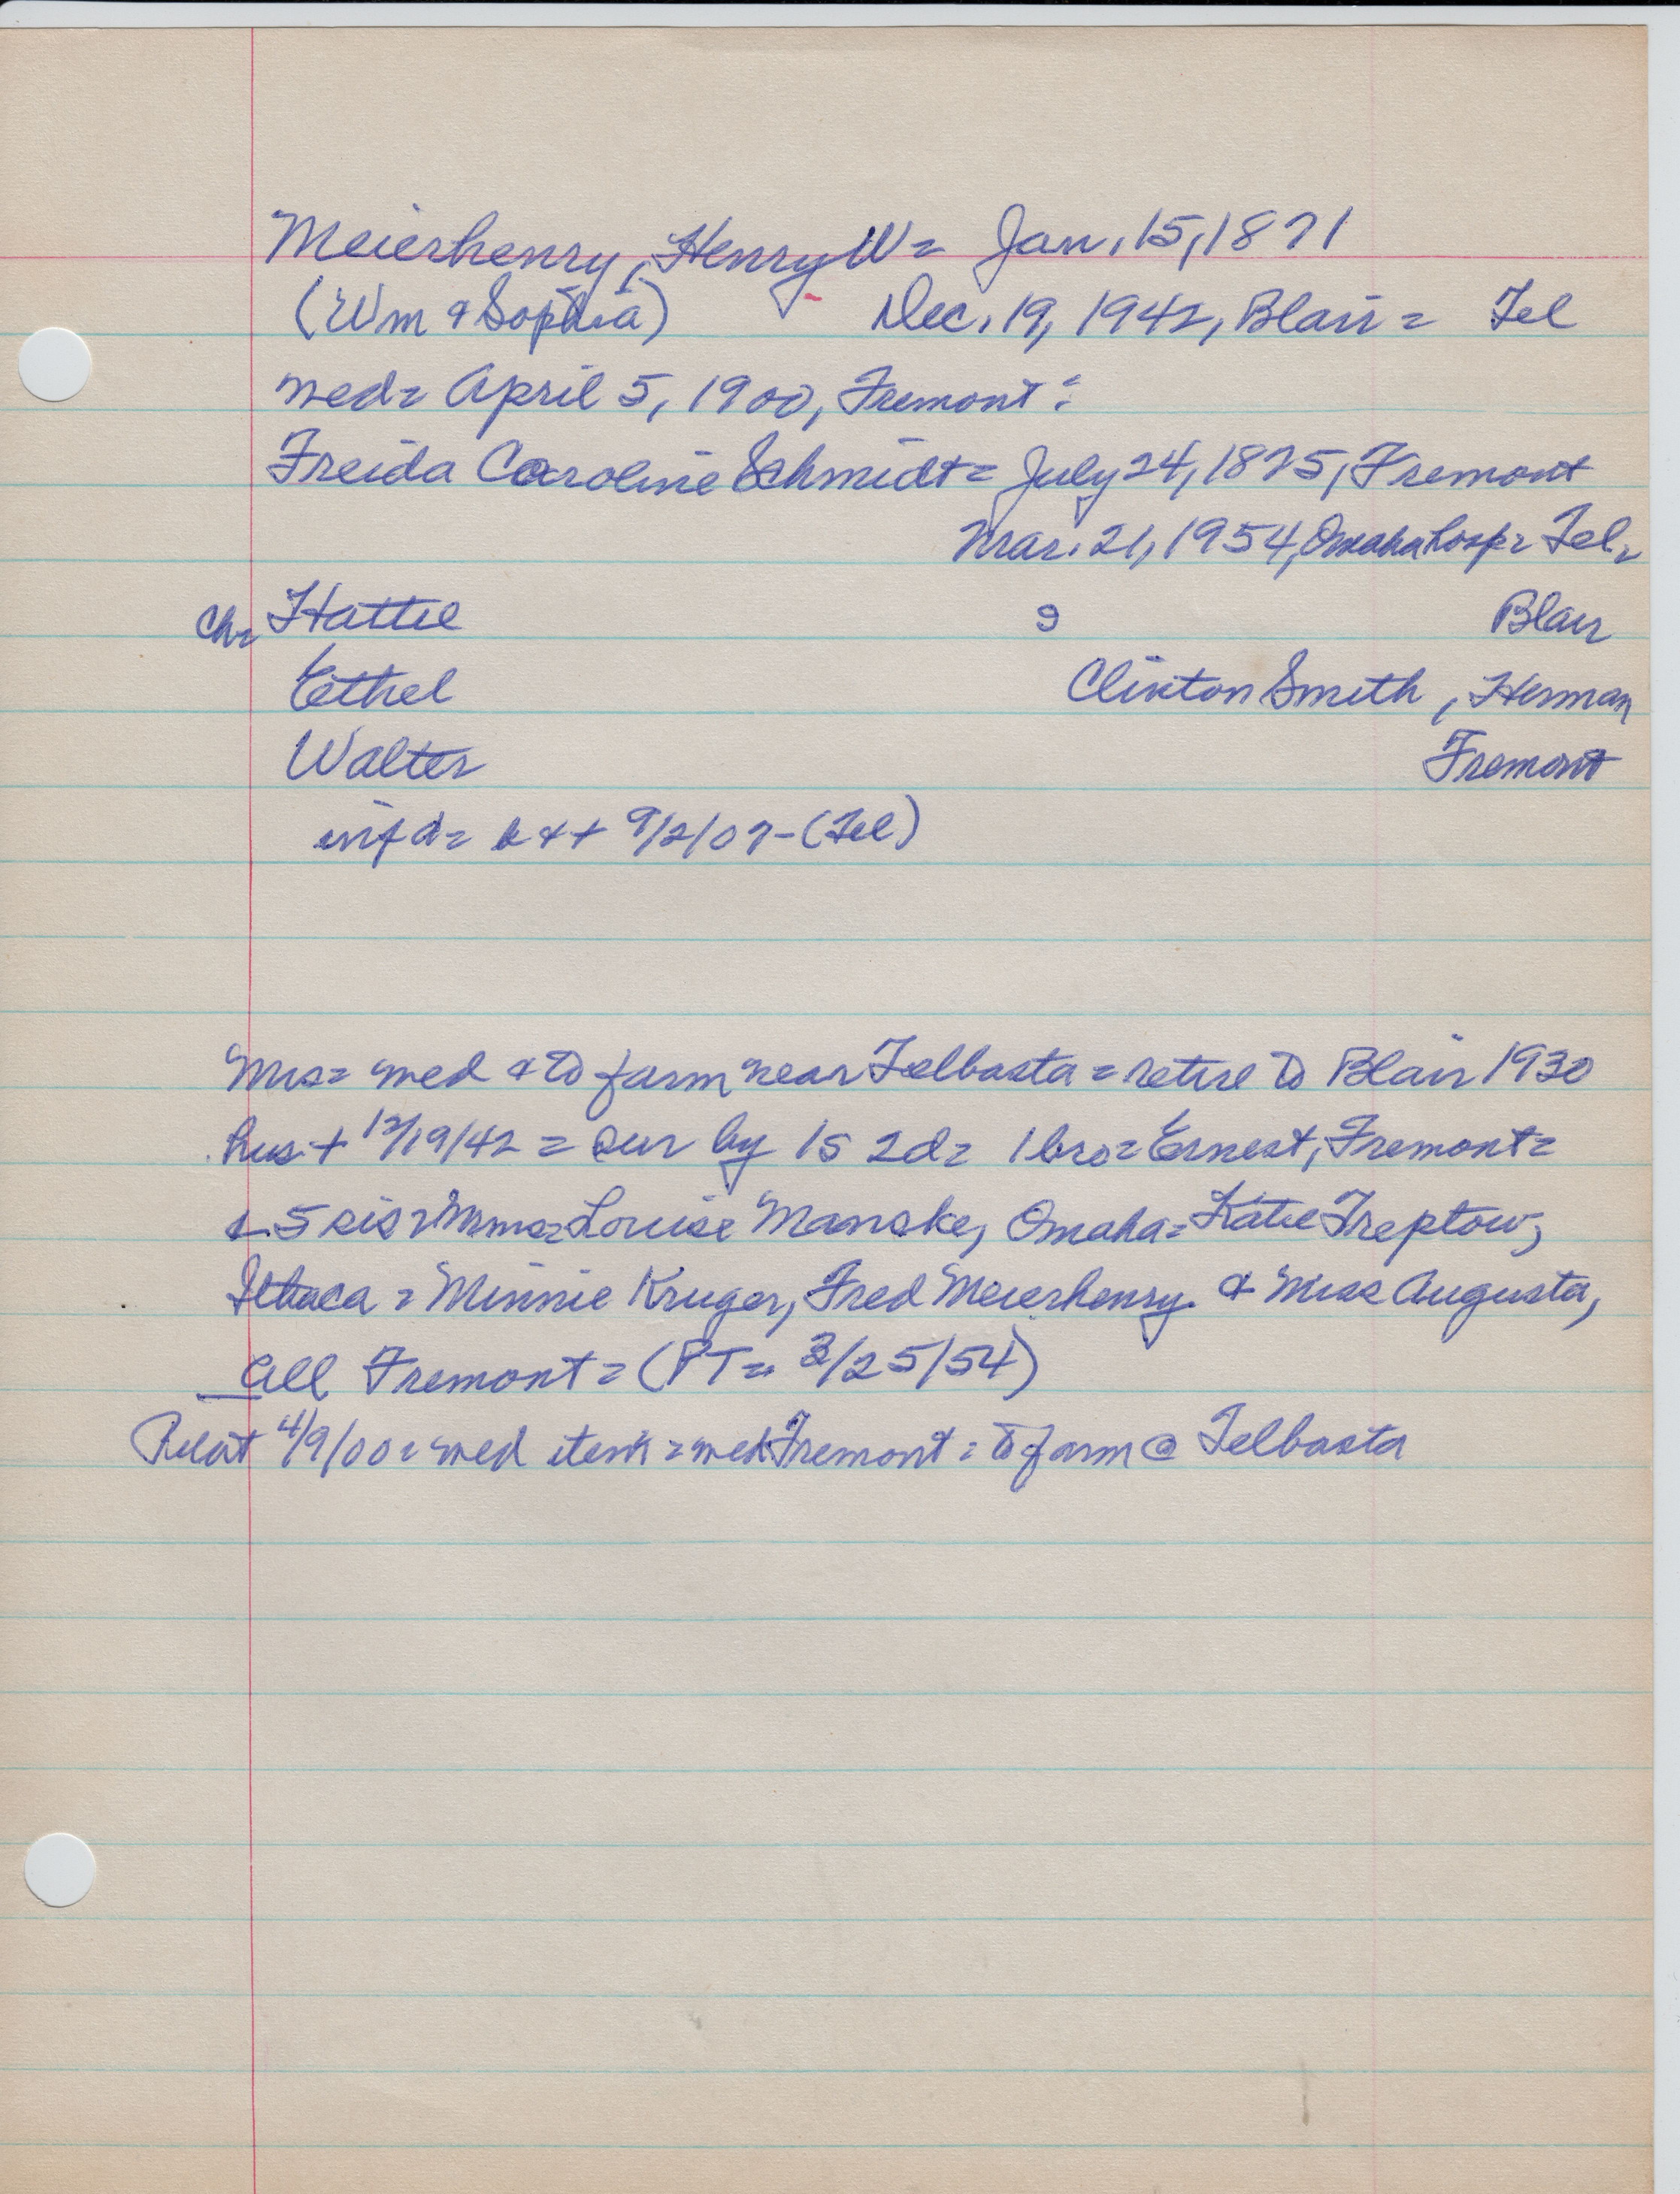 Meierhenry, Henry W = Jan. 15, 1871
(Wm & Sophia) Dec. 19, 1942, Blair = Tel
med = April 5, 1900, Fremont =
Freida Caroline Schmidt = July 24, 1875, Fremont
Mar. 21, 1954, Omaha hosp = Tel =
Ch = Hattie 9 Blair
Ethel Clinton Smith, Herman
Walter Fremont
inf d = b & + 9/2/07 - (Tel)
Mrs = med & to farm near Telbasta = retire to Blair 1930
hus + 12/19/42 = sur by 1s 2d = 1 bro = Ernest, Fremont =
& 5 sis = Mmes = Louise Manske, Omaha = Katie Treptow,
Ithaca = Minnie Kruger, Fred Meierhenry & Miss Augusta,
all Fremont = (PT = 3/25/54)
4/9/00 = med item = med Fremont = to farm @ Telbasta